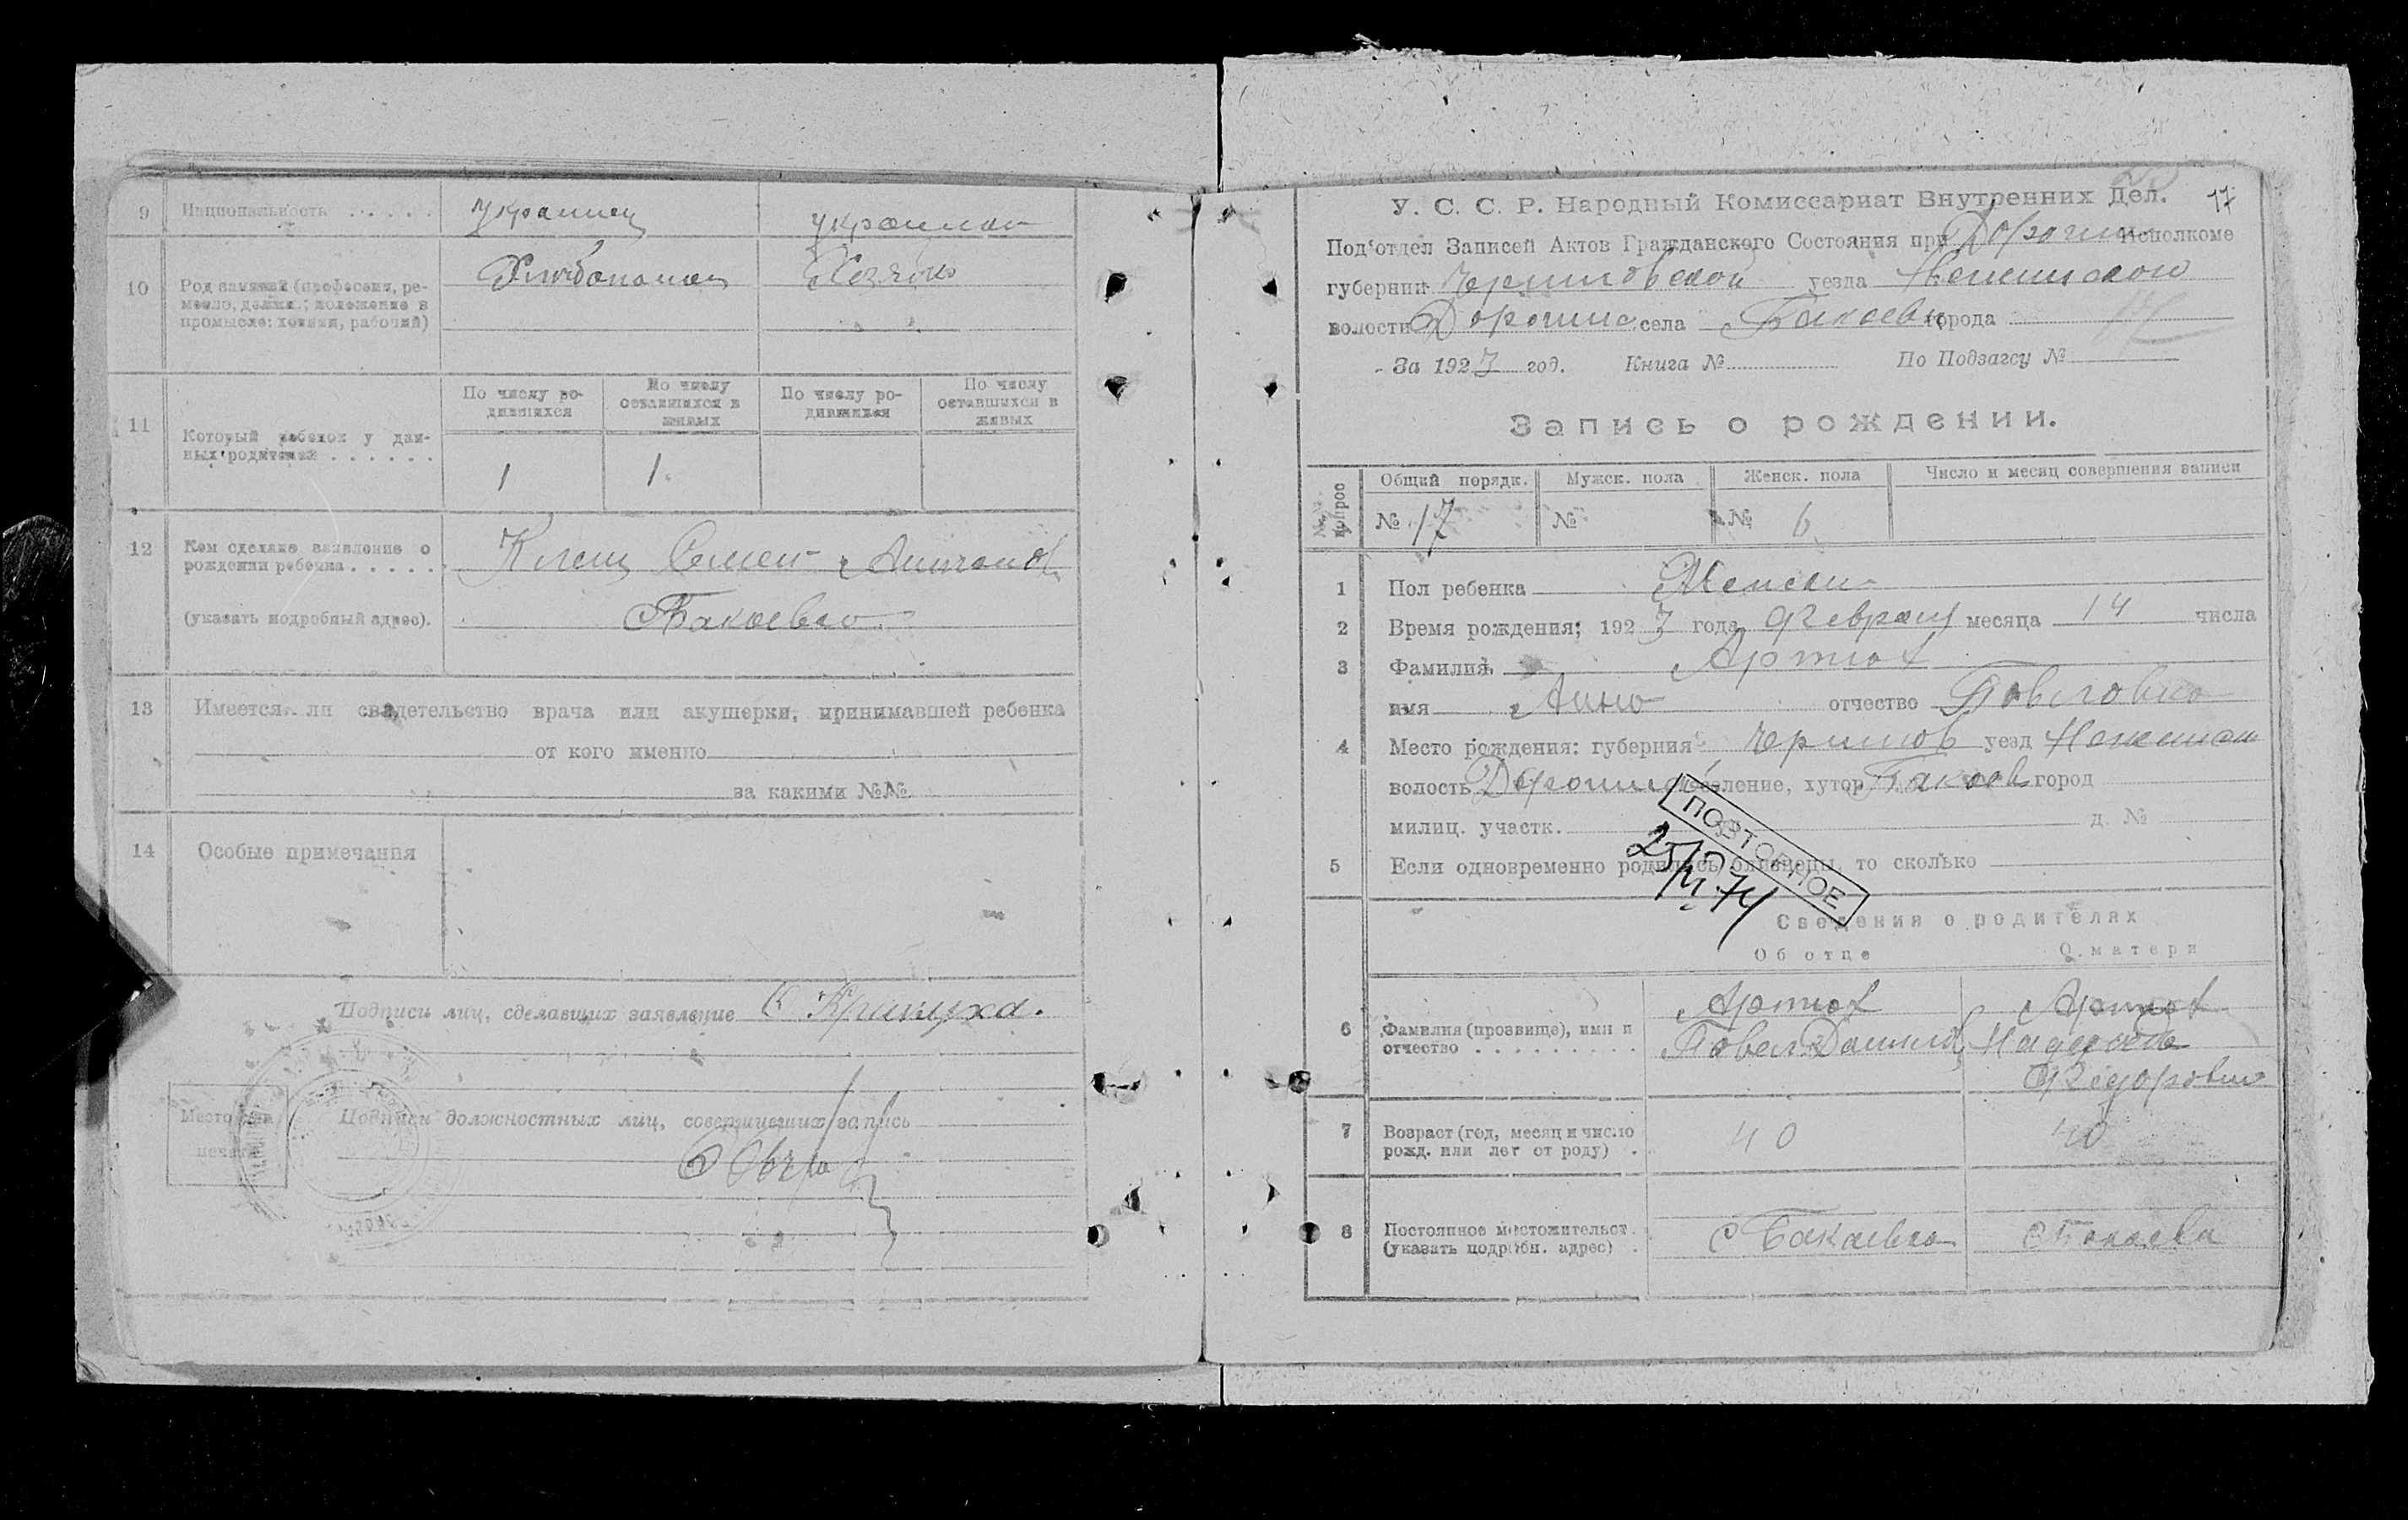 9 Национальность . . . . . . Украинец украинка
10 Род занятий (професия, ре-
месло, должн.; положение в
промысле: хозяин, рабочий)
Хлібопашец
11 Который ребенок у дан-
ных родителей . . . . . .
По числу ро-
дившихся
По числу
оставшихся в
живых
По числу ро-
дившихся
По числу
оставшихся в
живых
1 1
12 Кем сделано заявление о
рождении ребенка . . . . .
(указать подробный адрес).
Клещ Семен Антонов
с Бакаевка
13 Имеется ли свидетельство врача или акушерки, принимавшей ребенка
от кого именно
за какими №№
14 Особые примечания
Подписи лиц, сделавших заявление
Место для
печати
Подписи должностных лиц, совершивших запись
17
У. С. С. Р. Народный Комиссариат Внутренних Дел.
Под‘отдел Записей Актов Гражданского Состояния при Дорогин Исполкоме
губернии Черниговской уезда Неженской
волости Дорогинс села Бакаевка города
За 1923 год. Книга № По Подзагсу №
Запись о рождении.
№№ вопрос
Общий порядк. Мужск. пола Женск. пола Число и месяц совершения записи
№ 17 № № 6
1 Пол ребенка Женски
2 Время рождения; 1923 года Февраля месяца 14 числа
3 Фамилия, Артюх
имя Анна отчество Павловна
4 Место рождения: губерния Чернигов уезд Неженск
волость Дорогинс селение, хутор Бакаев город
милиц. участк. д. №
5 Если одновременно родились близнецы, то сколько
ПОВТОРНОЕ
25/VI 74
Сведения о родителях
Об отце О матери
6 Фамилия (прозвище), имя и
отчество . . . . . . . . .
Артюх
Павел Данилов
Артюх
Надежда
Федоровна
7 Возраст (год, месяц и число
рожд. или лет от роду) .
40 40
8 Постоянное местожительст.
(указать подробн. адрес) .
с Бакаевка с Бакаевка